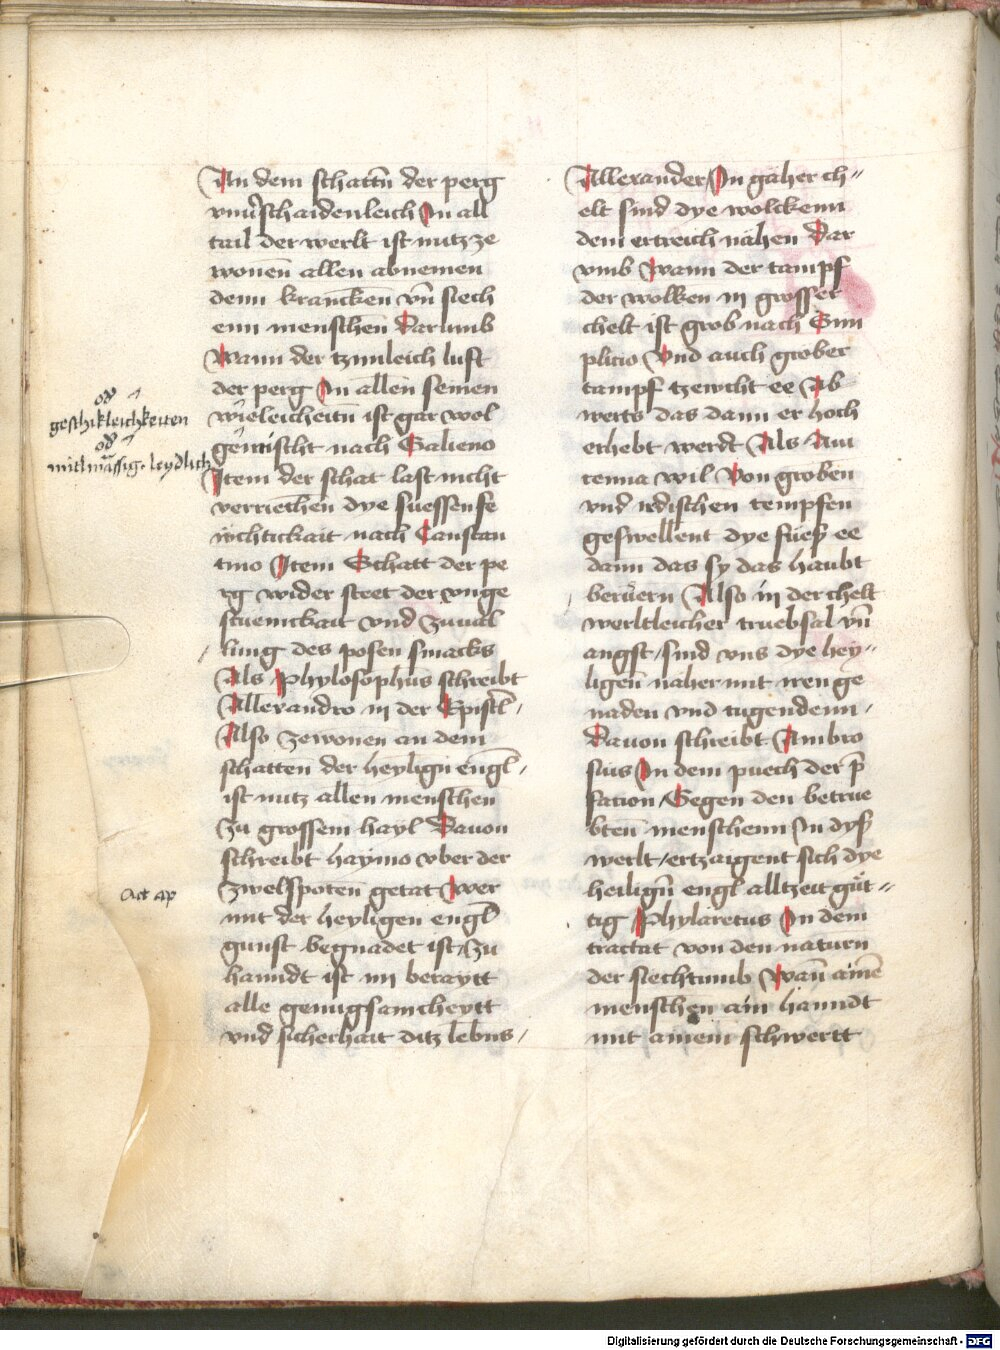 An dem schattn̄ der perg
vnuͦschaidenleich In all
tail der werlt ist nutz ze
wonen̄ allen abnemen
denn kranckēn vn̄ siech
enn menschēn Darumb
Wann der tzimleich luft
der perg In allen seinen
wieleicheitn ist gar wol
gemischt nach Galieno
Item der schat last nicht
verriechen dye suessen fe
wͦchtickait nach Constan
tino Item Schatt der pe
rg wider steet der vnge
stuemickait vnd zuual
lung des posen smacks
Als Phylosophūs schreibt
Allexandro in der Epistl̄
Also zewonen an dem
schatten der heyligñ engl̄
ist nutz allen menschen
zu grossem hayl Dauon
schreibt haymo vber der
zwelfpoten̄ getat Wer
mit der heyligen engl̄
gunst begnadet ist / zu
hanndt ist im beraytt
alle genugsamcheytt
vnd sicherhait ditz lebns
od
geschikleichkeiten
od
mitlmässig. leydlich
Act ap
Allexander / In gaher ch〃
elt sind dye wolckenn
dem ertreich nähen Dar
vmb Wann der tampf
der wolken in grosser
chelt ist grob nach Sim
plicio Vnd auch grober
tampf tzewcht ee Ab
werts das dann er hoch
erhebt werdt Als Aui
cenna wil Von groben
vnd irdischen tempfen
geswellent dye fües̄ ee
dann das sy das haubt
berüern Also in der chelt
werltleicher truebsal vn̄
angst / sind vns dye hey〃
ligen̄ naher mit iren ge
naden vnd tugendenn
Dauon schreibt Ambro
sius In dem puech der p̄
fation Gegen den betrue
bten̄ menschenn In dys̄
werlt / ertzaigent sich dye
heiligñ engl̄ alltzeit güt〃
tig Phylaretus In dem
tractat von den naturn
der siechtumb Wan̄ ainē
menschen ain hanndt
mit ainem schwertt